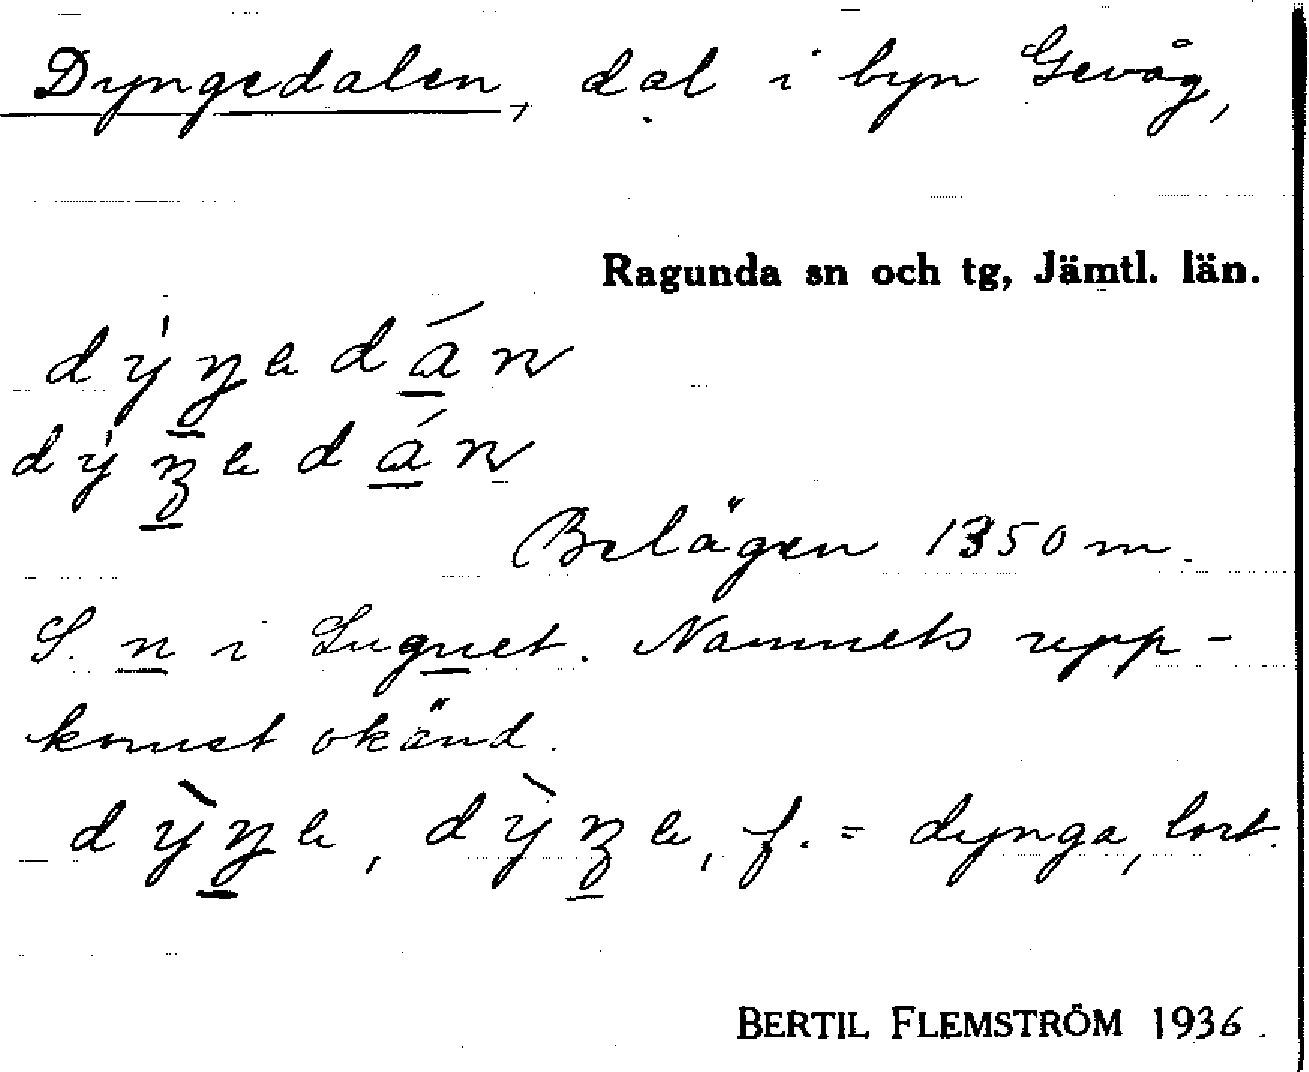 Dyngedalen, dal i byn Gevåg,
Ragunda sn och tg, Jämtl. län.
dýŋedán
dýꞑedán
Belägen 1350 m.
S. n i Lugnet. Namnets upp-
komst okänd.
dỳŋe, dỳꞑe, f. = dynga, lort.
BERTIL FLEMSTRÖM 1936.